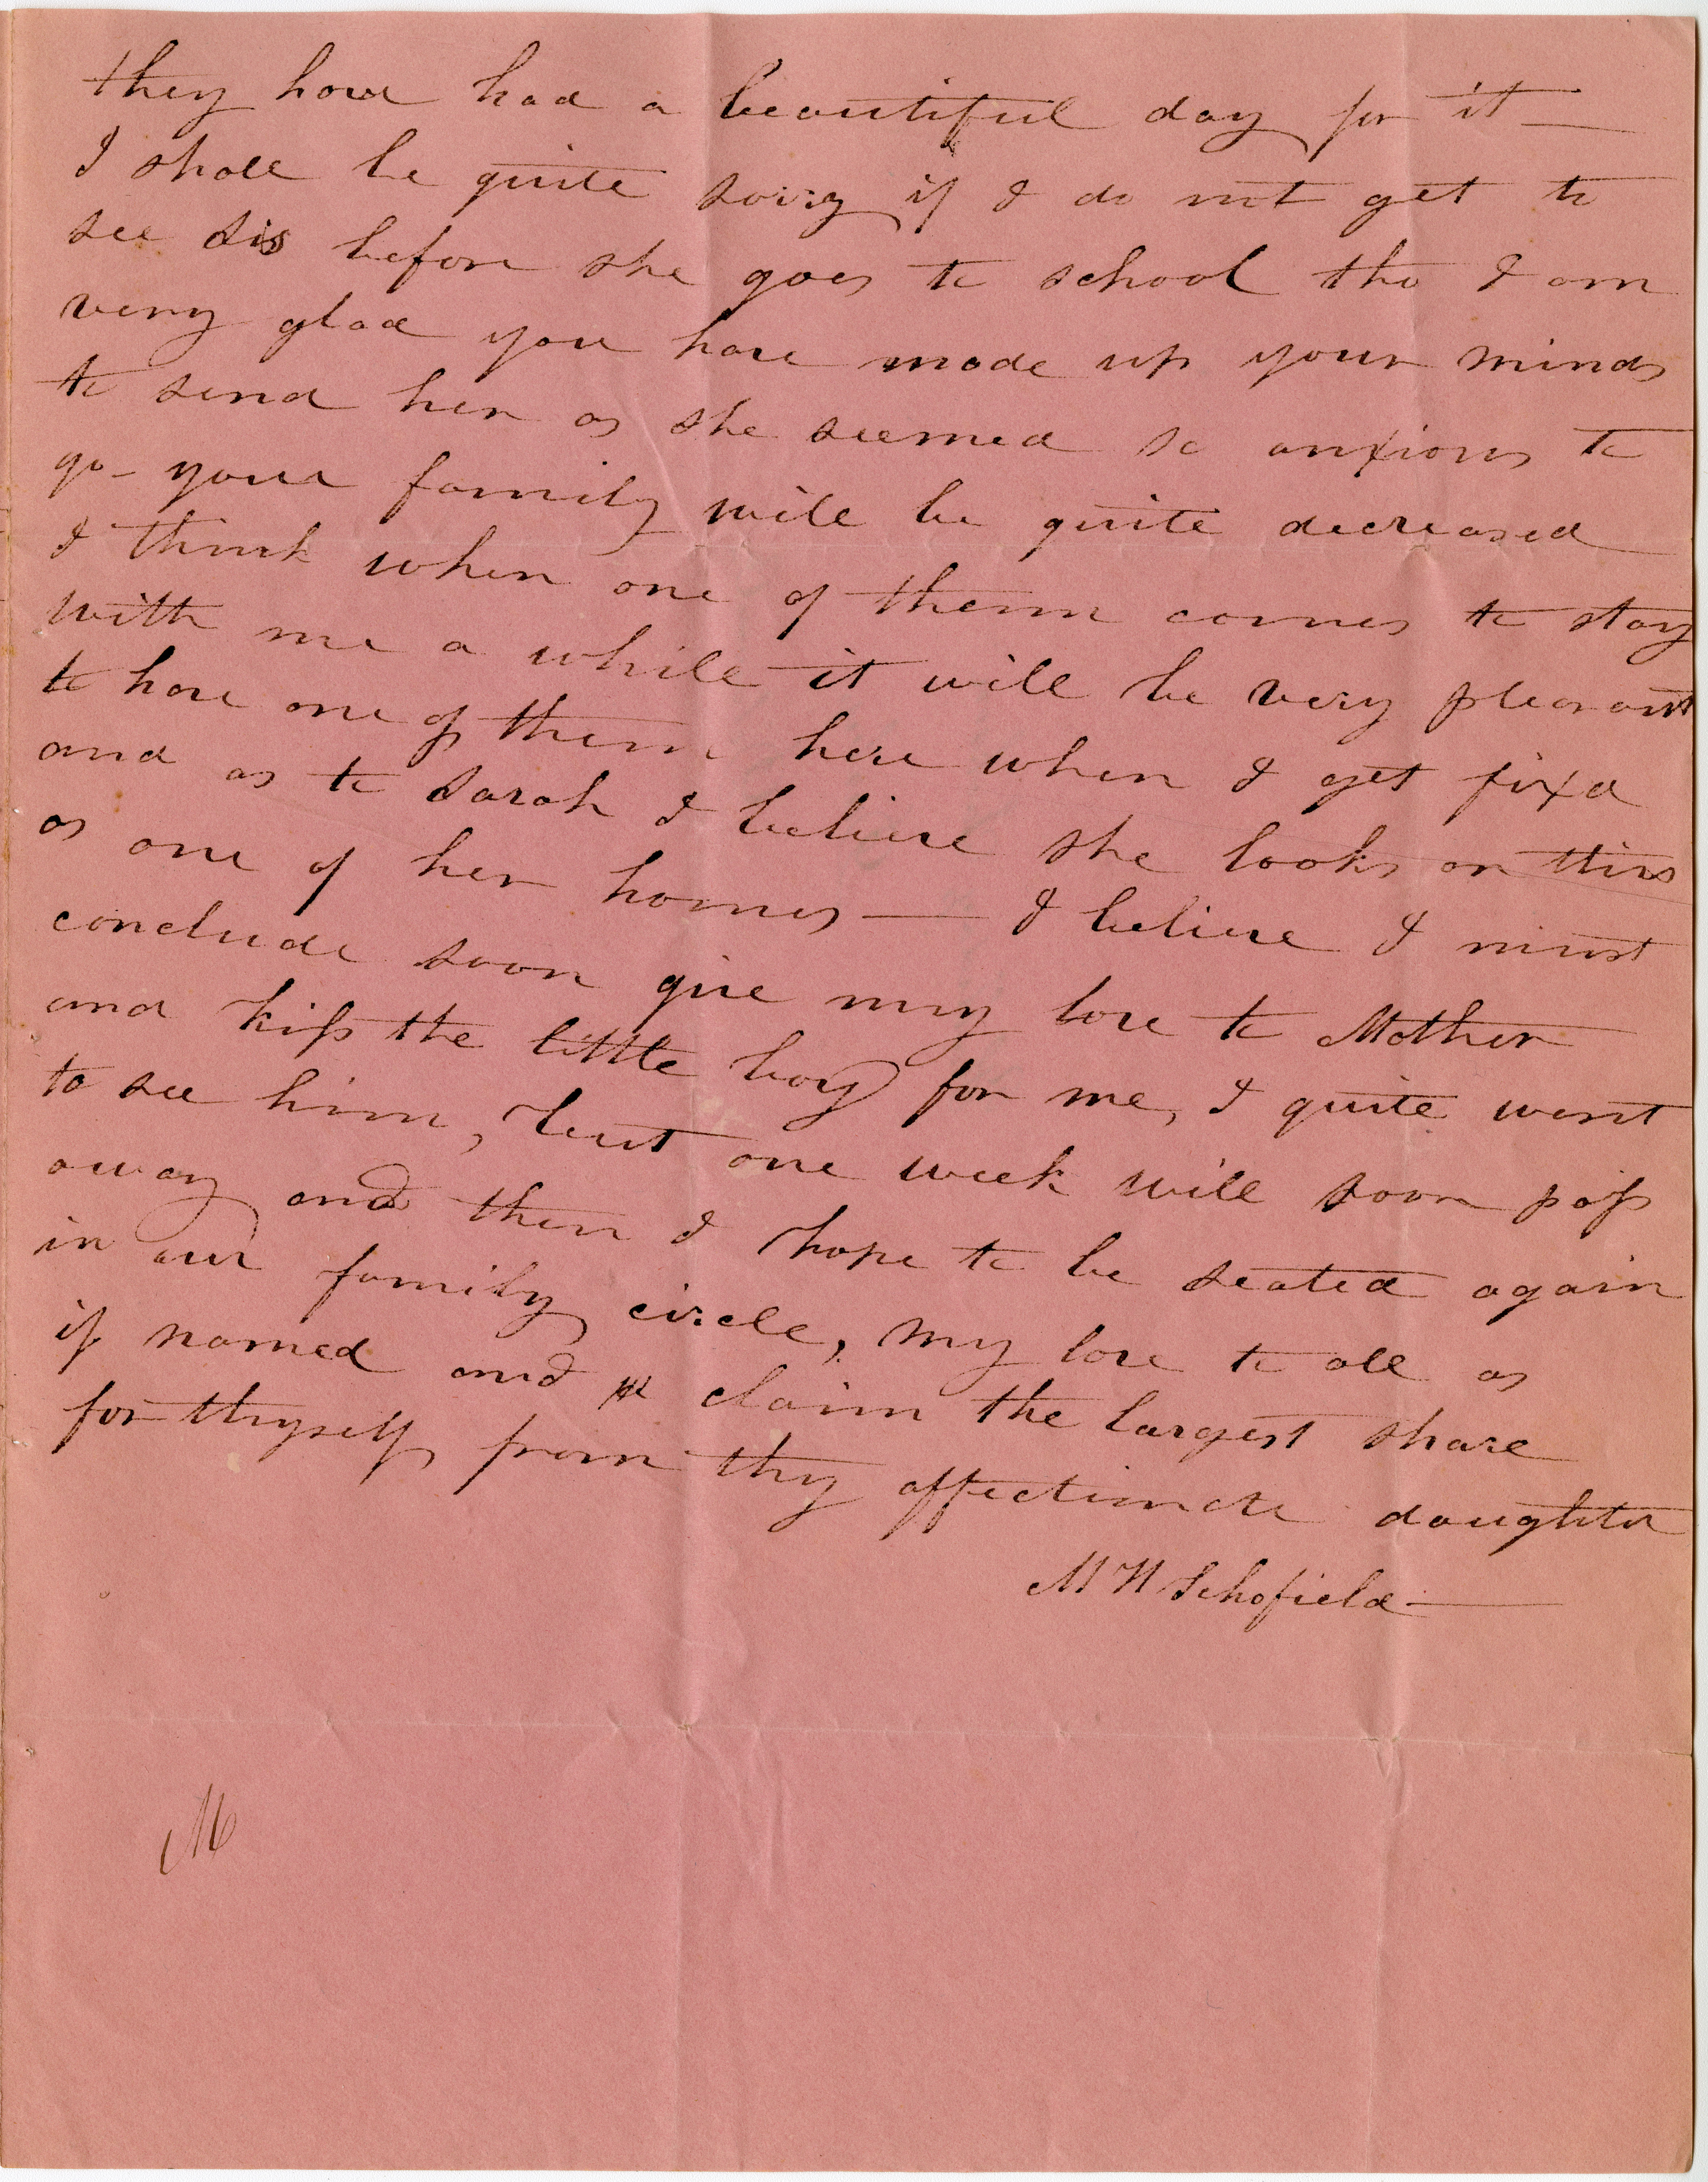 they have had a beautiful day for it —
I shall be quite sorry if I do not get to
see Sis before she goes to school tho I am
very glad you have made up your minds
to send her as she seemed so anxious to
go - your family will be quite decreased
I think when one of them comes to stay
with me a while it will be very pleasant
to have one of them here when I get fixd
and as to Sarah I believe she looks on this
as one of her homes — I believe I must
conclude soon give my love to Mother
and kiss the little boy for me, I quite want
to see him, but one week will soon pass
away and then I hope to be seated again
in our family circle, my love to all as
if named and claim the largest share
for thyself from thy affectionate daughter
M H Schofield —
M